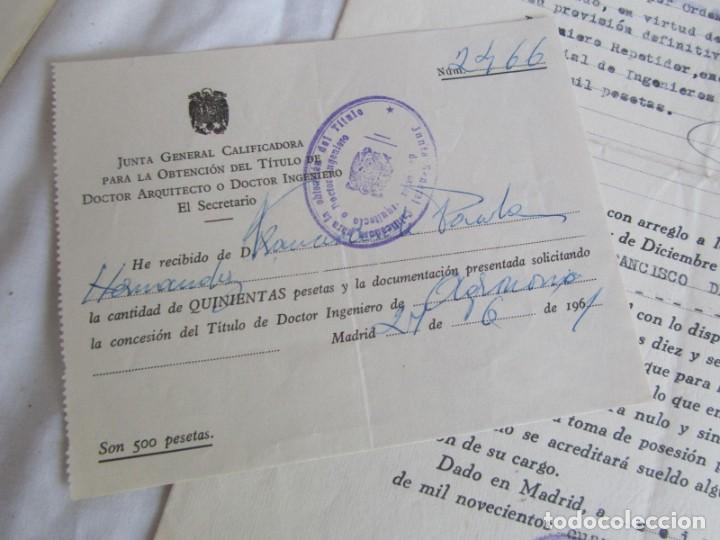 Núm. 2466
JUNTA GENERAL CALIFICADORA
PARA LA OBTENCIÓN DEL TÍTULO DE
DOCTOR ARQUITECTO O DOCTOR INGENIERO
El Secretario
Junta General Calificadora para la obtención del Título
He recibido de D. Francisco de Paula
Hernandez
la cantidad de QUINIENTAS pesetas y la documentación presentada solicitando
la concesión del Título de Doctor Ingeniero de Agronomo
Madrid 27 de 6 de 1961
Son 500 pesetas.
por Orden
do, en virtud de
provisión definitiv
niero Repetidor, en
ial de Ingenieros
mil pesetas.
con arreglo a l
de Diciembre
FRANCISCO D
con lo disp
s diez y se
que para
lo que en
rá nulo y sin
toma de posesión
no se acreditará sueldo algu
ón de su cargo.
Dado en Madrid, a
de mil novecientos
todocoleccion.net